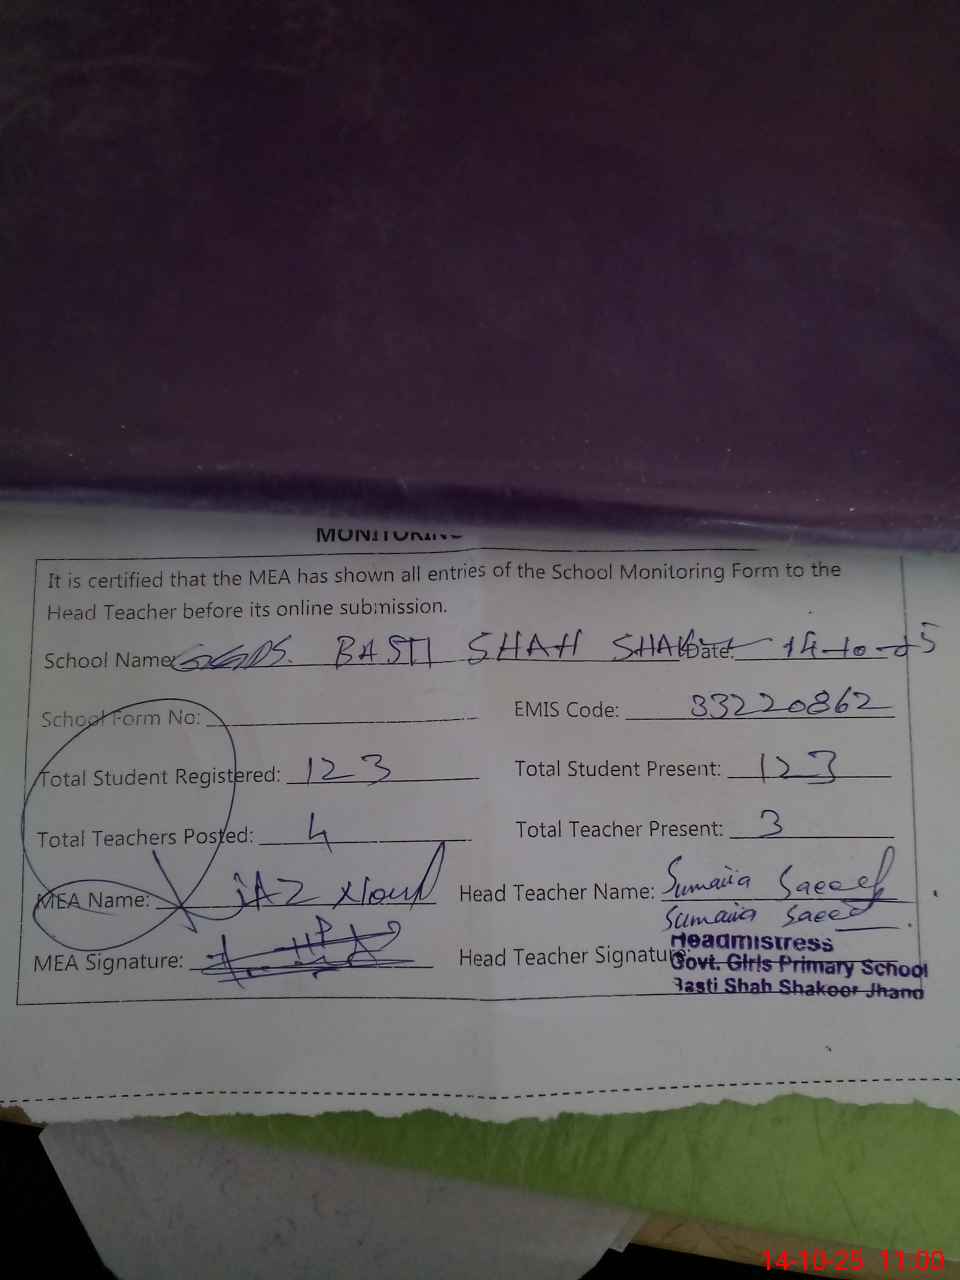 MONITORING
It is certified that the MEA has shown all entries of the School Monitoring Form to the
Head Teacher before its online submission.
School Name: GGPS. BASTI SHAH Date: 14-10-25
School Form No: EMIS Code: 33220862
Total Student Registered: 123 Total Student Present: 123
Total Teachers Posted: 4 Total Teacher Present: 3
MEA Name: Head Teacher Name: Sumaira Saeed
Sumaira Saeed
MEA Signature: Head Teacher Signature:
Headmistress
Govt. Girls Primary School
Basti Shah Shakoor Jhang
14-10-25 11:00